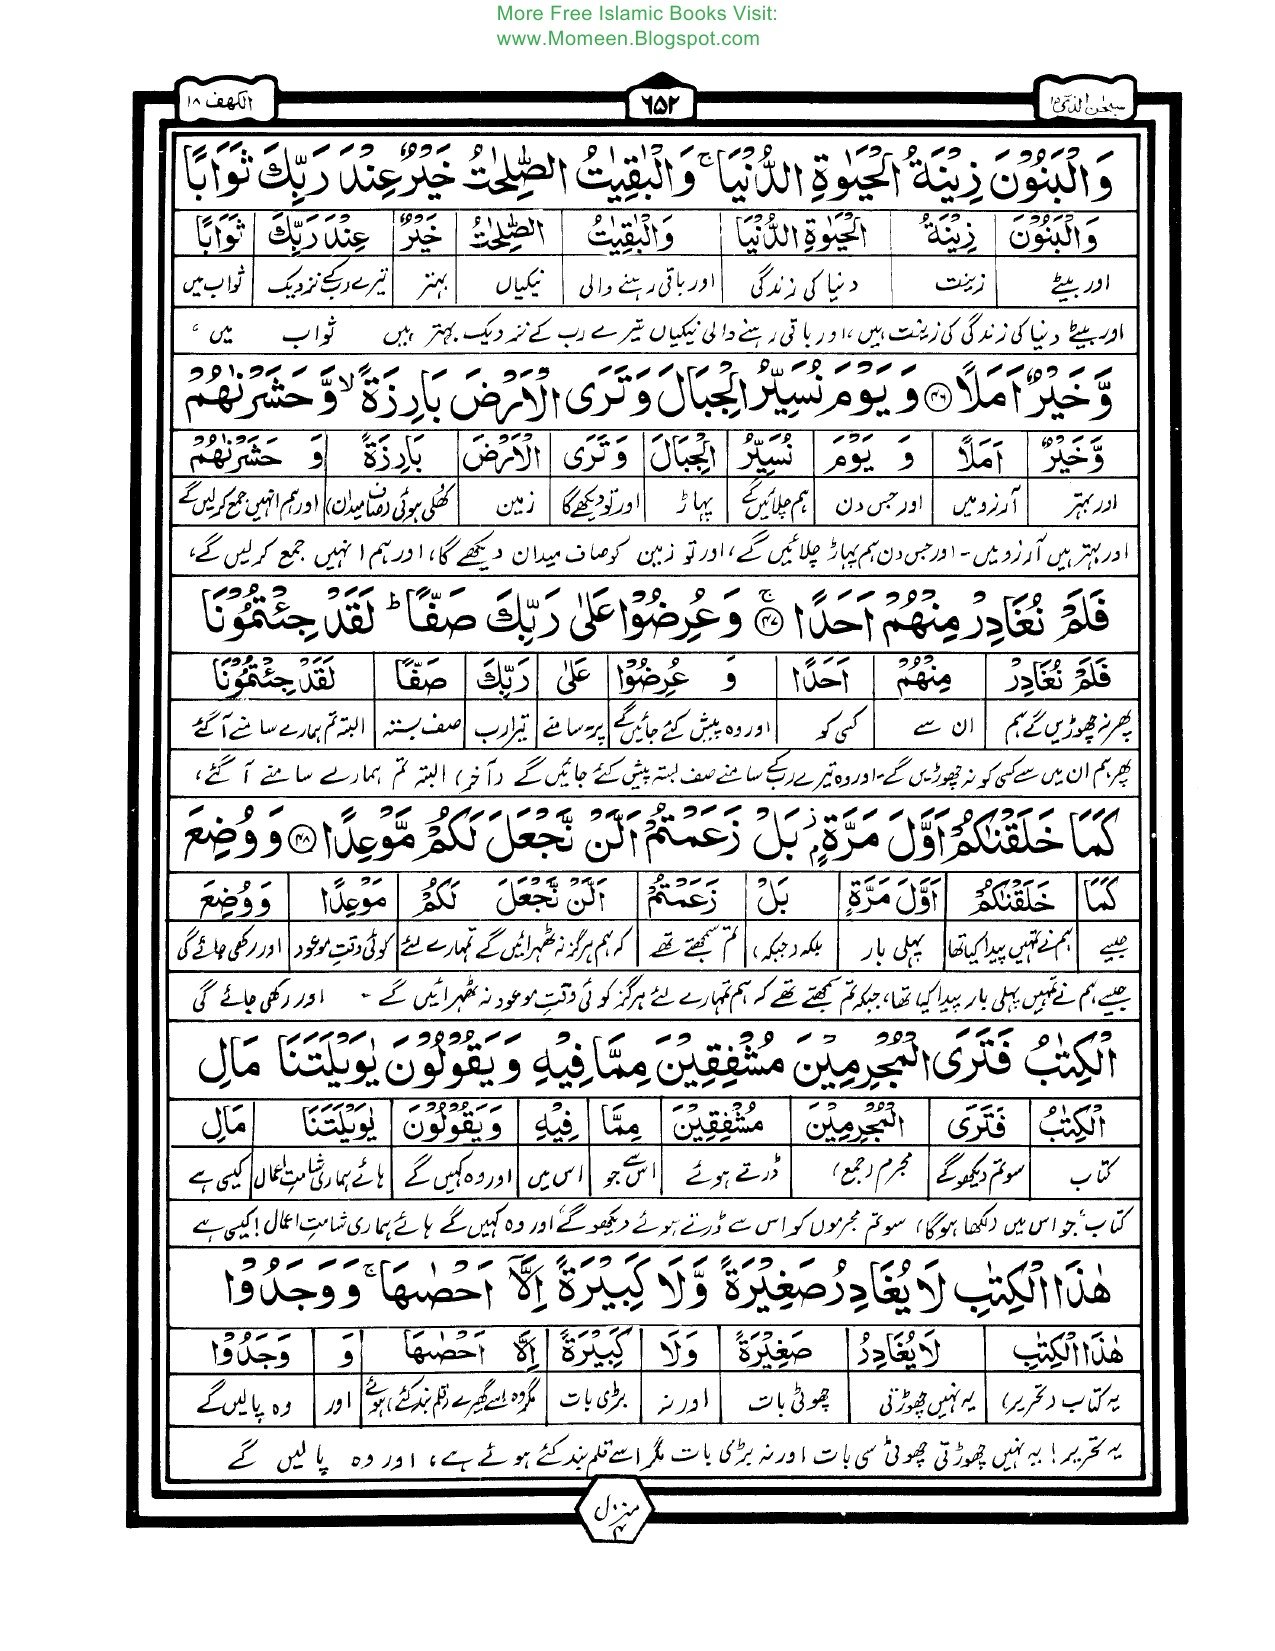 More Free Islamic Books Visit:
www.Momeen.Blogspot.com
سبحٰن الذی ۱۵ ۶۵۲ الکھف ۱۸
وَالْبَنُوْنَ زِيْنَةُ الْحَيٰوةِ الدُّنْيَا ۚ وَالْبٰقِيٰتُ الصّٰلِحٰتُ خَيْرٌ عِنْدَ رَبِّكَ ثَوَابًا
وَالْبَنُوْنَ زِيْنَةُ الْحَيٰوةِ الدُّنْيَا وَالْبٰقِيٰتُ الصّٰلِحٰتُ خَيْرٌ عِنْدَ رَبِّكَ ثَوَابًا
اور بیٹے زینت دنیا کی زندگی اور باقی رہنے والی نیکیاں بہتر تیرے رب کے نزدیک ثواب میں
اور بیٹے دنیا کی زندگی کی زینت ہیں، اور باقی رہنے والی نیکیاں تیرے رب کے نزدیک بہتر ہیں ثواب میں،
وَّخَيْرٌ اَمَلًا ﴿۴۶﴾ وَ يَوْمَ نُسَيِّرُ الْجِبَالَ وَ تَرَى الْاَرْضَ بَارِزَةً ۙ وَّ حَشَرْنٰهُمْ
وَّخَيْرٌ اَمَلًا وَ يَوْمَ نُسَيِّرُ الْجِبَالَ وَ تَرَى الْاَرْضَ بَارِزَةً وَّ حَشَرْنٰهُمْ
اور بہتر آرزو میں اور جس دن ہم چلائیں گے پہاڑ اور تو دیکھے گا زمین کھلی ہوئی (صاف میدان) اور ہم انہیں جمع کرلیں گے
اور بہتر ہیں آرزو میں۔ اور جس دن ہم پہاڑ چلائیں گے، اور تو زمین کو صاف میدان دیکھے گا، اور ہم انہیں جمع کرلیں گے،
فَلَمْ نُغَادِرْ مِنْهُمْ اَحَدًا ﴿۴۷﴾ۚ وَ عُرِضُوْا عَلٰى رَبِّكَ صَفًّا ؕ لَقَدْ جِئْتُمُوْنَا
فَلَمْ نُغَادِرْ مِنْهُمْ اَحَدًا وَ عُرِضُوْا عَلٰى رَبِّكَ صَفًّا لَقَدْ جِئْتُمُوْنَا
پھر نہ چھوڑیں گے ہم ان سے کسی کو اور وہ پیش کئے جائیں گے پر۔ سامنے تیرا رب صف بستہ البتہ تم ہمارے سامنے آگئے
پھر ہم ان میں سے کسی کو نہ چھوڑیں گے۔ اور وہ تیرے رب کے سامنے صف بستہ پیش کئے جائیں گے (آخر) البتہ تم ہمارے سامنے آگئے،
كَمَا خَلَقْنٰكُمْ اَوَّلَ مَرَّةٍۭ ؗ بَلْ زَعَمْتُمْ اَلَّنْ نَّجْعَلَ لَكُمْ مَّوْعِدًا ﴿۴۸﴾ وَ وُضِعَ
كَمَا خَلَقْنٰكُمْ اَوَّلَ مَرَّةٍ بَلْ زَعَمْتُمْ اَلَّنْ نَّجْعَلَ لَكُمْ مَوْعِدًا وَ وُضِعَ
جیسے ہم نے تمہیں پیدا کیا تھا پہلی بار بلکہ (جبکہ) تم سمجھتے تھے کہ ہم ہرگز نہ ٹھہرائیں گے تمہارے لئے کوئی وقتِ موعود اور رکھی جائے گی
جیسے ہم نے تمہیں پہلی بار پیدا کیا تھا، جبکہ تم سمجھتے تھے کہ ہم تمہارے لئے ہرگز کوئی وقتِ موعود نہ ٹھہرائیں گے۔ اور رکھی جائے گی
الْكِتٰبُ فَتَرَى الْمُجْرِمِيْنَ مُشْفِقِيْنَ مِمَّا فِيْهِ وَ يَقُوْلُوْنَ يٰوَيْلَتَنَا مَالِ
الْكِتٰبُ فَتَرَى الْمُجْرِمِيْنَ مُشْفِقِيْنَ مِمَّا فِيْهِ وَ يَقُوْلُوْنَ يٰوَيْلَتَنَا مَالِ
کتاب سو تم دیکھو گے مجرم (جمع) ڈرتے ہوئے اس سے جو اس میں اور وہ کہیں گے ہائے ہماری شامتِ اعمال کیسی ہے
کتاب، جو اس میں (لکھا ہوگا) سو تم مجرموں کو اس سے ڈرتے ہوئے دیکھو گے، اور وہ کہیں گے ہائے ہماری شامتِ اعمال! کیسی ہے
هٰذَا الْكِتٰبِ لَا يُغَادِرُ صَغِيْرَةً وَّلَا كَبِيْرَةً اِلَّآ اَحْصٰىهَا ۚ وَ وَجَدُوْا
هٰذَا الْكِتٰبِ لَا يُغَادِرُ صَغِيْرَةً وَلَا كَبِيْرَةً اِلَّآ اَحْصٰىهَا وَ وَجَدُوْا
یہ کتاب (تحریر) یہ نہیں چھوڑتی چھوٹی بات اور نہ بڑی بات مگر وہ اسے گھیرے (قلم بند کئے) ہوئے اور وہ پالیں گے
یہ تحریر! یہ نہیں چھوڑتی چھوٹی سی بات اور نہ بڑی بات مگر اسے قلم بند کئے ہوئے ہے، اور وہ پالیں گے
منزل ۴